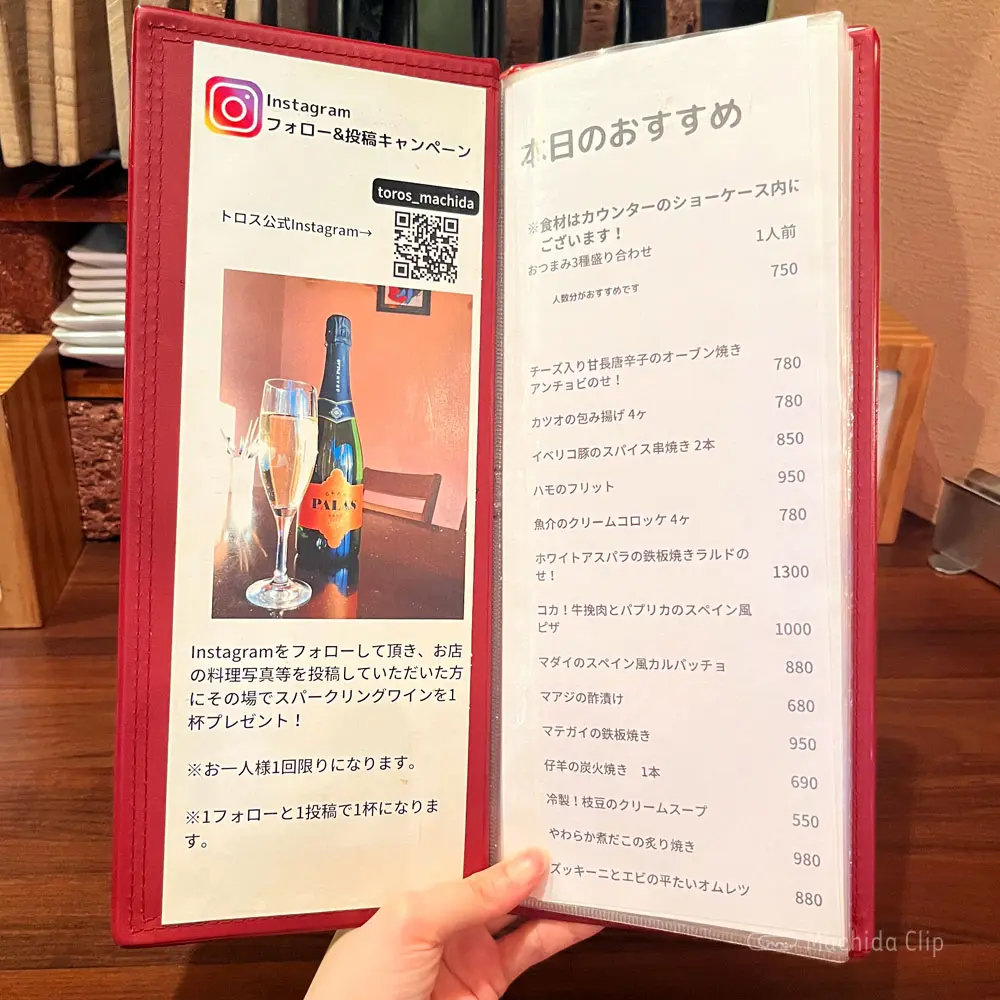 Instagram
フォロー&投稿キャンペーン
toros_machida
トロス公式Instagram→
PALAS
Instagramをフォローして頂き、お店
の料理写真等を投稿していただいた方
にその場でスパークリングワインを1
杯プレゼント！
※お一人様1回限りになります。
※1フォローと1投稿で1杯になりま
す。
本日のおすすめ
※食材はカウンターのショーケース内に
ございます！
1人前
おつまみ3種盛り合わせ 750
人数分がおすすめです
チーズ入り甘長唐辛子のオーブン焼き
アンチョビのせ！ 780
カツオの包み揚げ 4ヶ 780
イベリコ豚のスパイス串焼き 2本 850
ハモのフリット 950
魚介のクリームコロッケ 4ヶ 780
ホワイトアスパラの鉄板焼きラルドの
せ！ 1300
コカ！牛挽肉とパプリカのスペイン風
ピザ 1000
マダイのスペイン風カルパッチョ 880
マアジの酢漬け 680
マテガイの鉄板焼き 950
仔羊の炭火焼き 1本 690
冷製！枝豆のクリームスープ 550
やわらか煮だこの炙り焼き 980
ズッキーニとエビの平たいオムレツ 880
Machida Clip